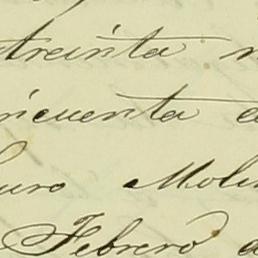 treinta
cincuenta
Moli
Febrero